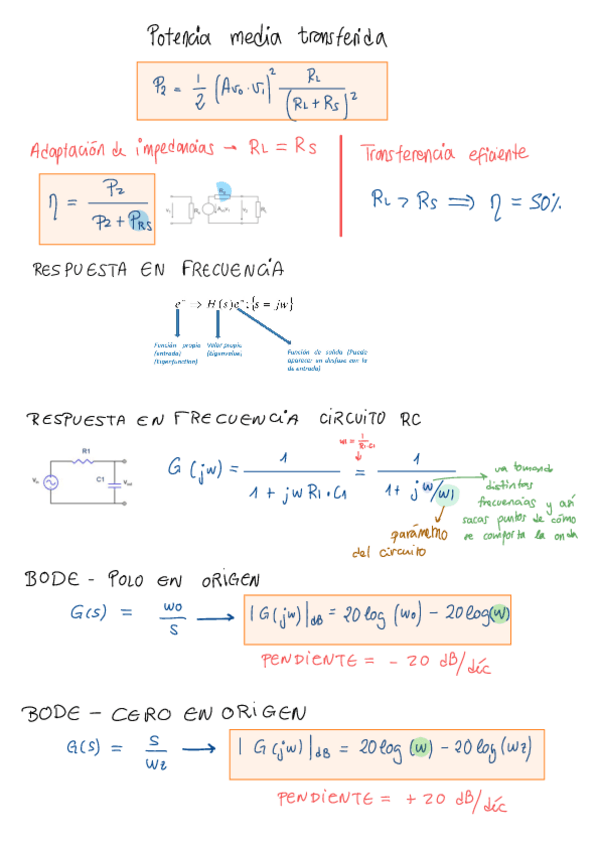 Potencia media transferida
P2 = 1/2 (Avo · v1)² RL/(RL + RS)²
Adaptación de impedancias → RL = RS
Transferencia eficiente
η = P2/(P2 + PRS)
RL > RS ⟹ η = 50%
RESPUESTA EN FRECUENCIA
=> H(s)e ; {s = jw}
Función propia (entrada) (Eigenfunction)
Valor propio (Eigenvalue)
Función de salida (Puede aparecer un desfase con la de entrada)
RESPUESTA EN FRECUENCIA CIRCUITO RC
R1
C1
w1 = 1/(R1·C1)
G(jw) = 1/(1 + jw R1·C1) = 1/(1 + j w/w1)
va tomando
distintas
frecuencias y así
sacas puntos de cómo
se comporta la onda
parámetro
del circuito
BODE - POLO EN ORIGEN
G(s) = wo/s → |G(jw)|dB = 20 log (wo) - 20 log(w)
PENDIENTE = - 20 dB/déc
BODE - CERO EN ORIGEN
G(s) = s/wz → |G(jw)|dB = 20 log (w) - 20 log (wz)
PENDIENTE = + 20 dB/déc